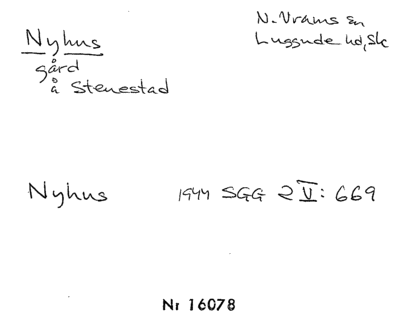 Nyhus
gård
å Stenestad
N. Vrams sn
Luggude hd, Sk
Nyhus 1944 SGG 2 V: 669
Nr 16078